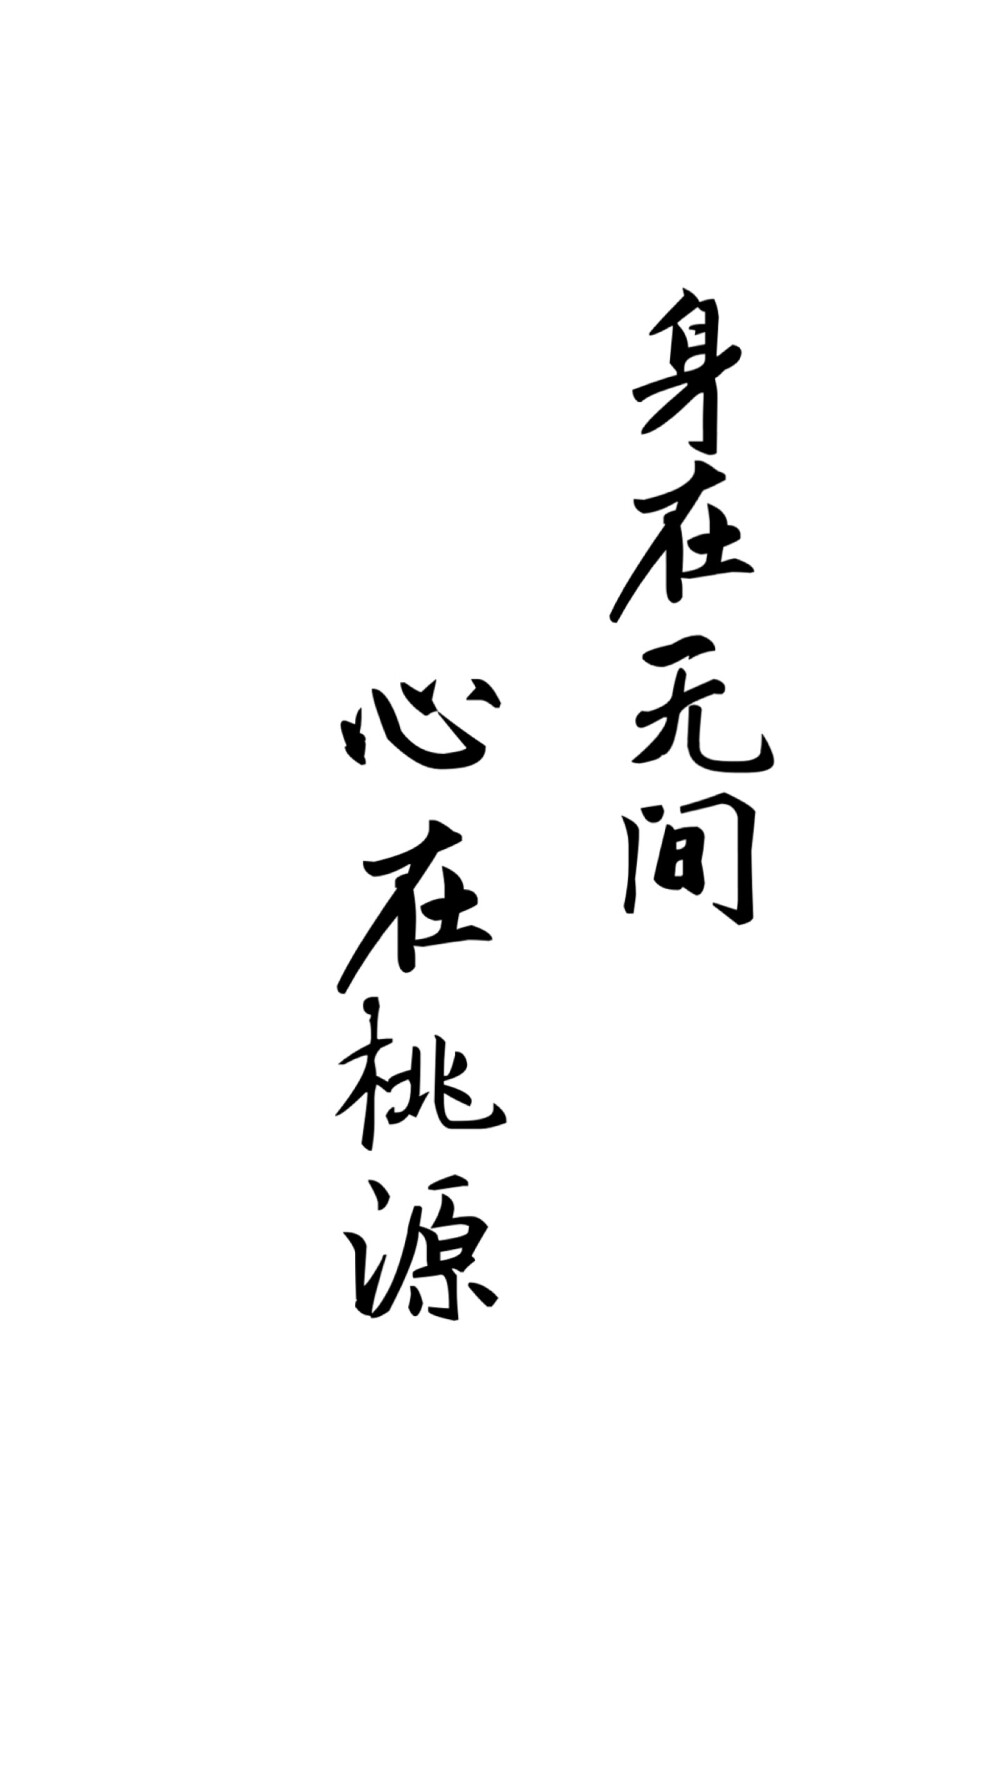 身在无间
心在桃源